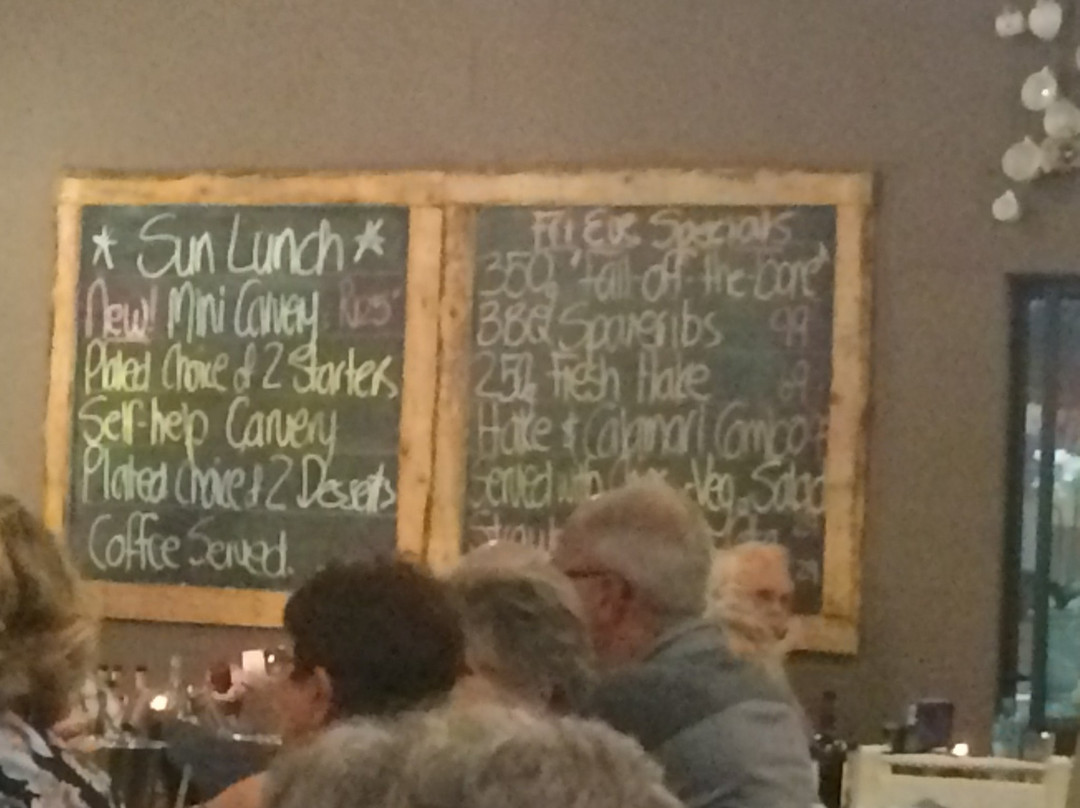 * Sun Lunch *
New! Mini Carvery
Plated Choice of 2 Starters
Self-help Carvery
Plated Choice of 2 Desserts
Coffee Served.
Fri Eve Specials
350g 'fall-off-the-bone'
BBQ Spareribs 99
250g Fresh Hake 69
Hake & Calamari Combo
Served with Veg, Salad